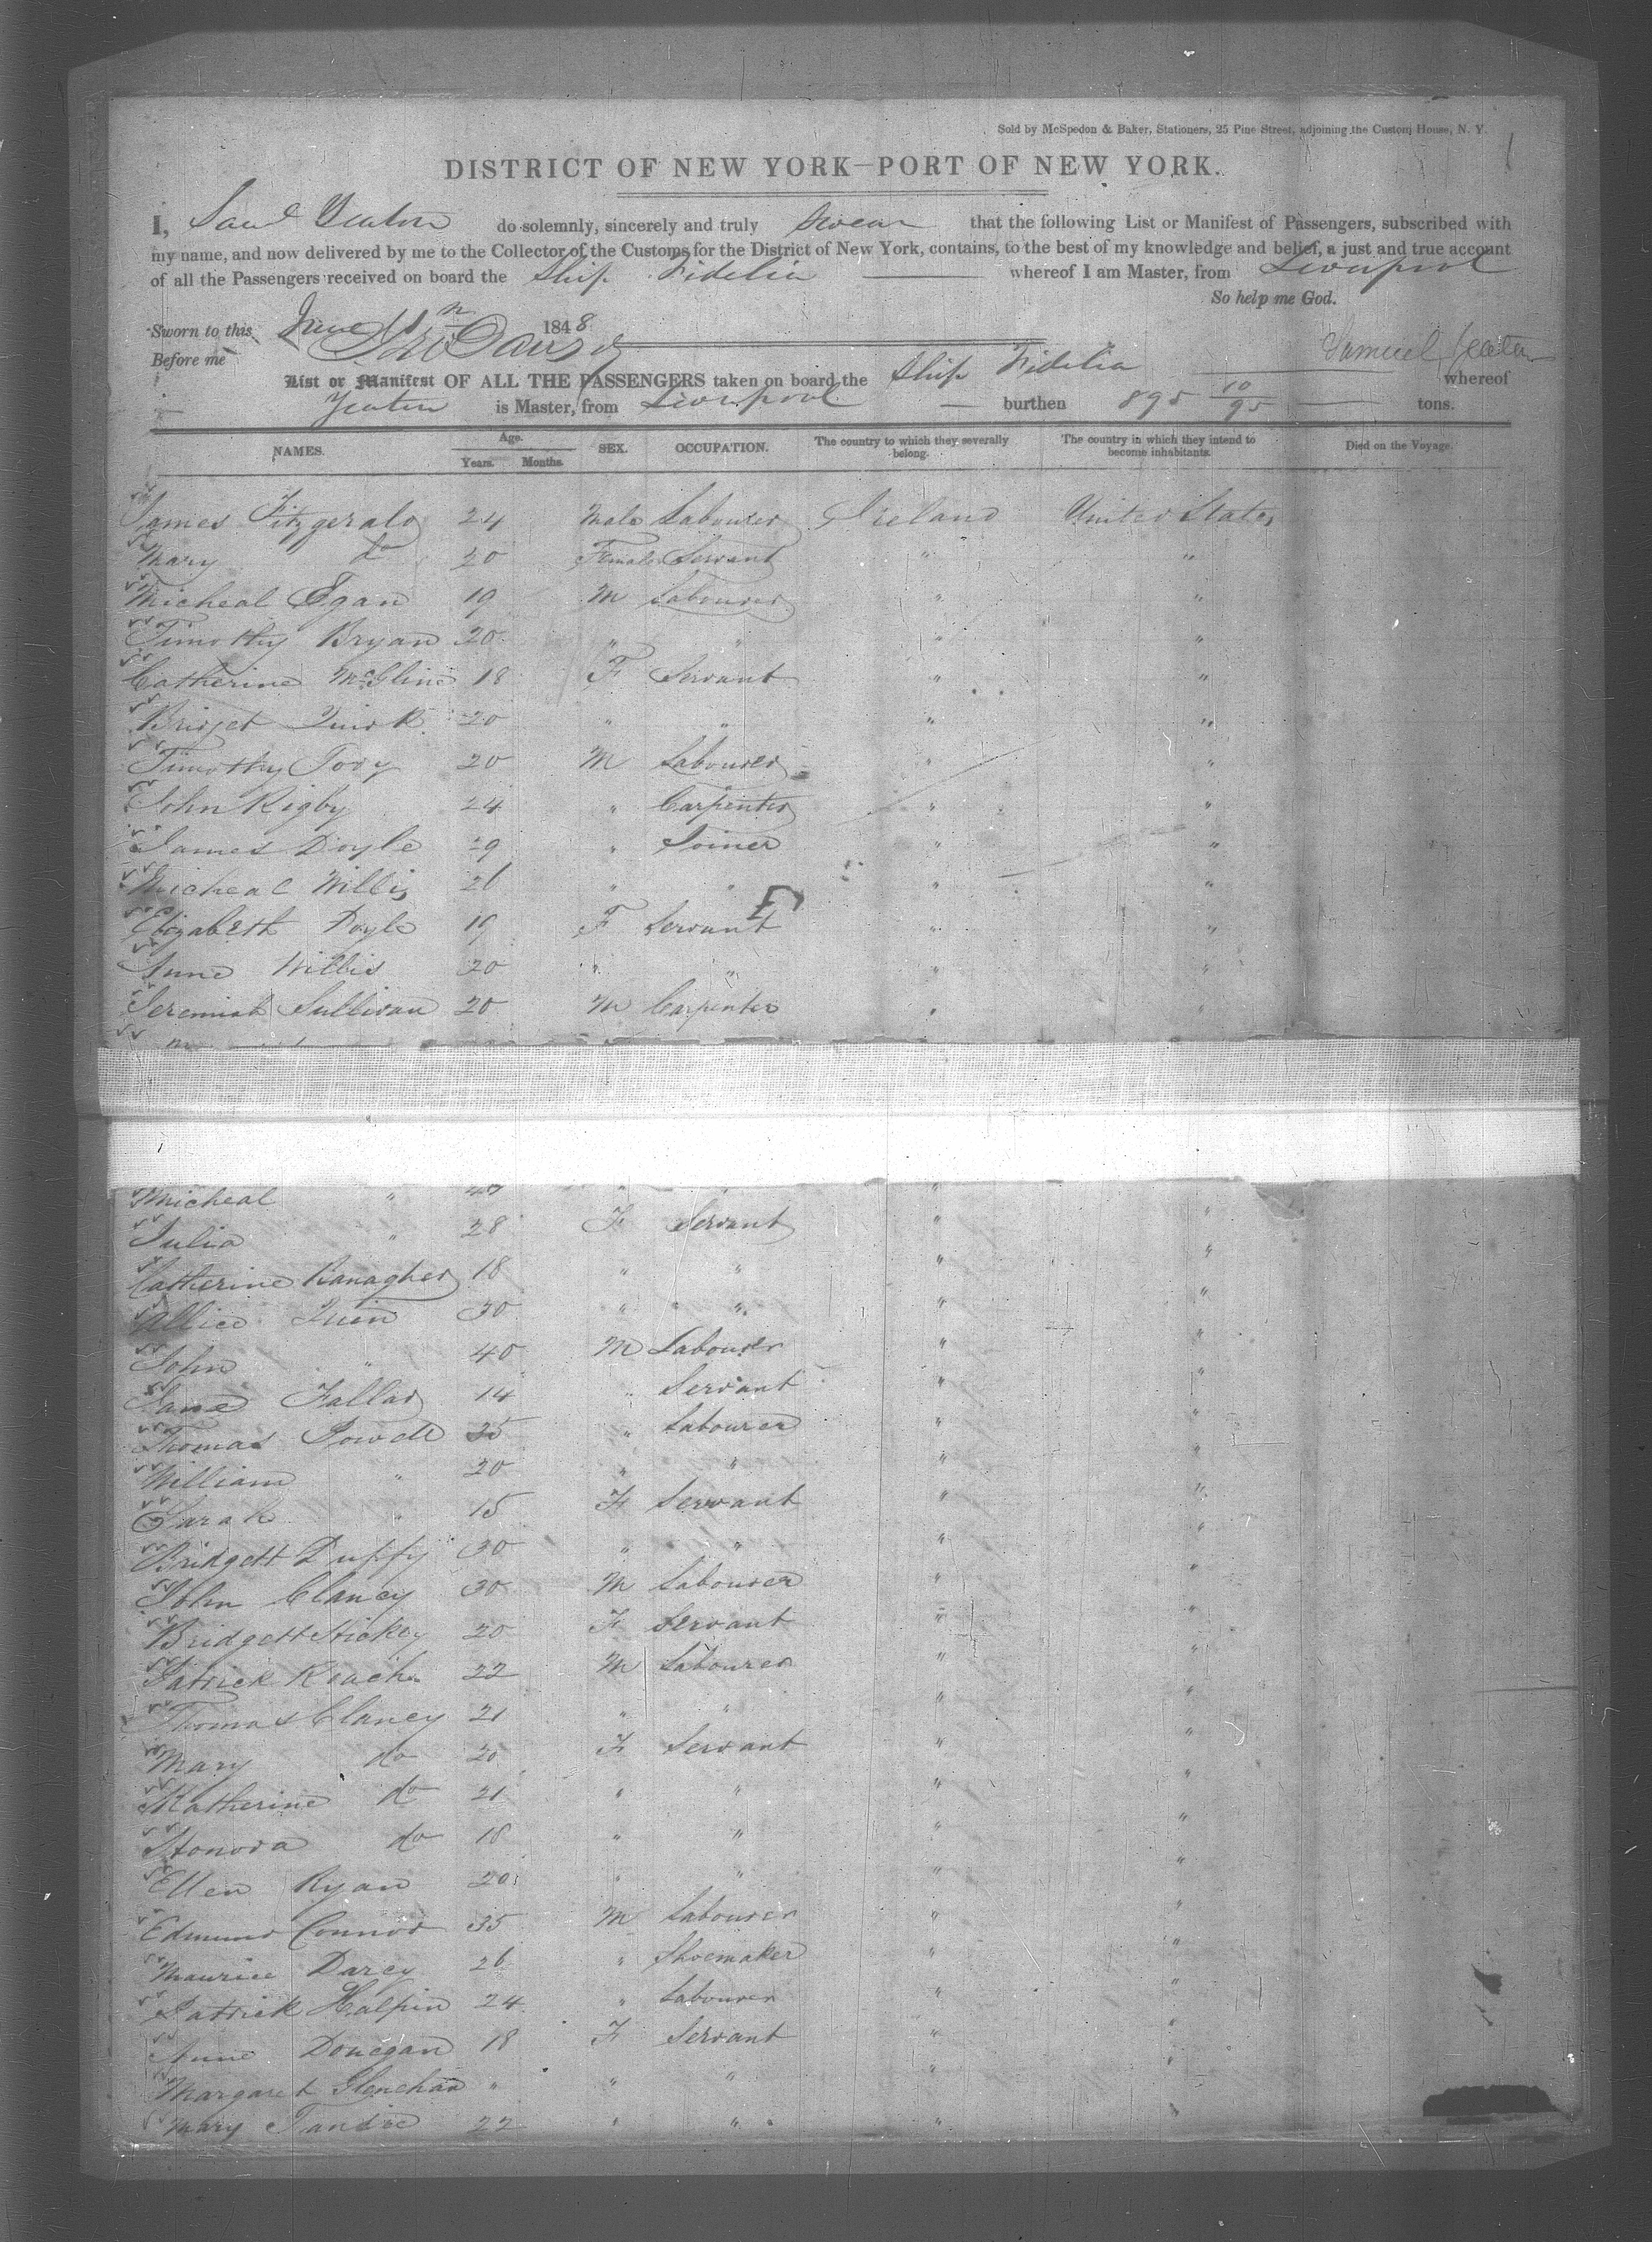 Sold by McSpedon & Baker, Stationers, 25 Pine Street, adjoining the Custom House, N. Y.
DISTRICT OF NEW YORK—PORT OF NEW YORK.
I, Saml Yeaton do solemnly, sincerely and truly swear that the following List or Manifest of Passengers, subscribed with
my name, and now delivered by me to the Collector of the Customs for the District of New York, contains, to the best of my knowledge and belief, a just and true account
of all the Passengers received on board the Ship Fidelia whereof I am Master, from Liverpool
So help me God.
Sworn to this June 1848
Before me Samuel Yeaton
List or Manifest OF ALL THE PASSENGERS taken on board the Ship Fidelia whereof
Yeaton is Master, from Liverpool burthen 895 10/95 tons.
NAMES. Age. Years. Months. SEX. OCCUPATION. The country to which they severally belong. The country in which they intend to become inhabitants. Died on the Voyage.
James Fitzgerald 24 Male Labourer Ireland United States
Mary do 20 Female Servant " "
Micheal Egan 19 M Labourer " "
Timothy Bryan 20 " " " "
Catherine McGlinn 18 F Servant " "
Bridget Quirk 20 " " " "
Timothy 20 M Labourer " "
John Rigby 24 " Carpenter " "
James Doyle 29 " Joiner " "
Micheal Willis 26 " " " "
Elizabeth Doyle 19 F Servant " "
Anne Willis 20 " " " "
Jeremiah Sullivan 20 M Carpenter " "
Micheal " " " "
Julia " 28 F Servant " "
Catherine Ranagher 18 " " " "
Allice Quin 30 " " " "
John " 40 M Labourer " "
Jane 14 " Servant " "
Thomas Powell 25 " Labourer " "
William " 20 " " " "
Sarah " 15 F Servant " "
Bridgett Duffy 30 " " " "
John Clancy 30 M Labourer " "
Bridgett Hickey 20 F Servant " "
Patrick Roach 22 M Labourer " "
Thomas Clancy 21 " " " "
Mary do 20 F Servant " "
Katherine do 21 " " " "
Honora do 18 " " " "
Ellen Ryan 20 " " " "
Edmund Connor 35 M Labourer " "
Maurice Darcy 26 " Shoemaker " "
Patrick Halpin 24 " Labourer " "
Anne Donegan 18 F Servant " "
Margaret " " " " "
Mary 22 " " " "